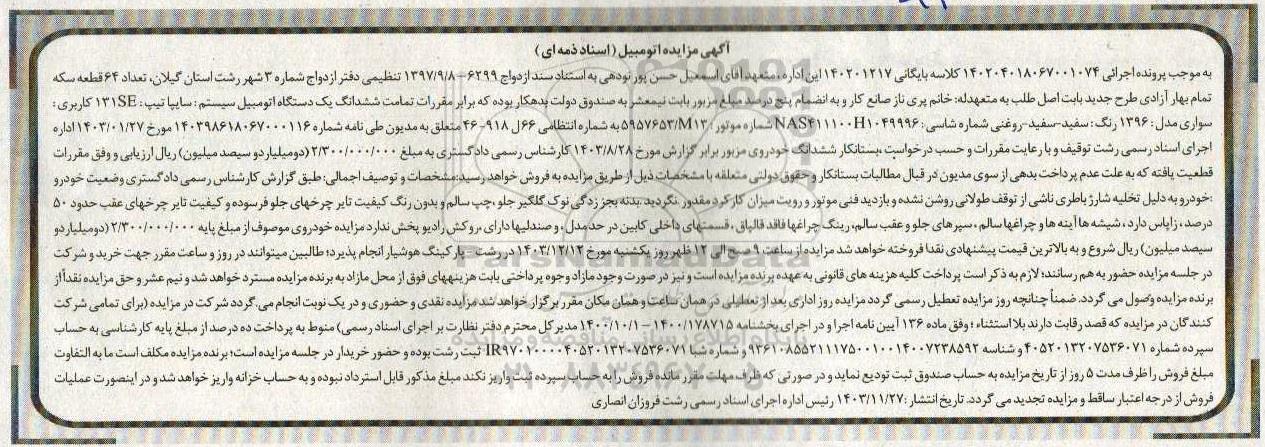 آگهی مزایده اتومبیل (اسناد ذمه ای)
به موجب پرونده اجرائی ۱۴۰۲۰۴۰۱۸۰۶۷۰۰۱۰۷۴ کلاسه بایگانی ۱۴۰۲۰۱۲۱۷ این اداره، متعهد آقای اسمعیل حسن پور نودهی به استناد سند ازدواج ۶۲۹۹-۱۳۹۷/۹/۸ تنظیمی دفتر ازدواج شماره ۳ شهر رشت استان گیلان، تعداد ۶۴ قطعه سکه
تمام بهار آزادی طرح جدید بابت اصل طلب به متعهدله: خانم پری ناز صانع کار و به انضمام پنج درصد مبلغ مزبور بابت نیمعشر به صندوق دولت بدهکار بوده که برابر مقررات تمامت ششدانگ یک دستگاه اتومبیل سیستم: سایپا تیپ: ۱۳۱SE کاربری:
سواری مدل: ۱۳۹۶ رنگ: سفید-سفید-روغنی شماره شاسی: NAS۴۱۱۱۰۰H۱۰۴۹۹۹۶ شماره موتور: ۵۹۵۷۶۵۳/M۱۳ به شماره انتظامی ۶۶ل ۹۱۸-۴۶ متعلق به مدیون طی نامه شماره ۱۴۰۳۹۸۶۱۸۰۶۷۰۰۰۱۱۶ مورخ ۱۴۰۳/۰۱/۲۷ اداره
اجرای اسناد رسمی رشت توقیف و با رعایت مقررات و حسب درخواست ،بستانکار ششدانگ خودروی مزبور برابر گزارش مورخ ۱۴۰۳/۸/۲۸ کارشناس رسمی دادگستری به مبلغ ۲/۳۰۰/۰۰۰/۰۰۰ (دومیلیارد و سیصد میلیون) ریال ارزیابی و وفق مقررات
قطعیت یافته که به علت عدم پرداخت بدهی از سوی مدیون در قبال مطالبات بستانکار و حقوق دولتی متعلقه با مشخصات ذیل از طریق مزایده به فروش خواهد رسید:مشخصات و توصیف اجمالی: طبق گزارش کارشناس رسمی دادگستری وضعیت خودرو
:خودرو به دلیل تخلیه شارژ باطری ناشی از توقف طولانی روشن نشده و بازدید فنی موتور و رویت میزان کارکرد مقدور .نگردید .بدنه بجز زدگی نوک گلگیر جلو ،چپ سالم و بدون رنگ کیفیت تایر چرخهای جلو فرسوده و کیفیت تایر چرخهای عقب حدود ۵۰
درصد، زاپاس دارد، شیشه ها آینه ها و چراغها سالم، سپرهای جلو و عقب سالم، رینگ چرخها فاقد قالپاق، قسمتهای داخلی کابین در حد مدل، و صندلیها دارای روکش رادیو پخش ندارد مزایده خودروی موصوف از مبلغ پایه ۲/۳۰۰/۰۰۰/۰۰۰ (دومیلیارد و
سیصد میلیون) ریال شروع و به بالاترین قیمت پیشنهادی نقدا فروخته خواهد شد مزایده از ساعت ۹ صبح الی ۱۲ ظهر روز یکشنبه مورخ ۱۴۰۳/۱۲/۱۲ در رشت - پارکینگ هوشیار انجام پذیرد؛ طالبین میتوانند در روز و ساعت مقرر جهت خرید و شرکت
در جلسه مزایده حضور به هم رسانند؛ لازم به ذکر است پرداخت کلیه هزینه های قانونی به عهده برنده مزایده است و نیز در صورت وجود مازاد وجوه پرداختی بابت هزینههای فوق از محل مازاد به برنده مزایده مسترد خواهد شد و نیم عشر و حق مزایده نقداً از
برنده مزایده وصول می گردد. ضمناً چنانچه روز مزایده تعطیل رسمی گردد مزایده روز اداری بعد از تعطیلی در همان ساعت و همان مکان مقرر برگزار خواهد شد مزایده نقدی و حضوری و در یک نوبت انجام می.گردد شرکت در مزایده (برای تمامی شرکت
کنندگان در مزایده که قصد رقابت دارند بلا استثناء ؛ وفق ماده ۱۳۶ آیین نامه اجرا و در اجرای بخشنامه ۱۴۰۰/۱۷۸۷۱۵-۱۴۰۰/۱۰/۱ مدیر کل محترم دفتر نظارت بر اجرای اسناد رسمی) منوط به پرداخت ده درصد از مبلغ پایه کارشناسی به حساب
سپرده شماره ۴۰۵۲۰۱۳۲۰۷۵۳۶۰۷۱ و شناسه ۹۳۶۱۰۸۵۵۲۱۱۱۷۵۰۰۱۰۰۱۴۰۰۷۲۳۸۵۹۲ و شماره شبا IR۹۷۰۱۰۰۰۰۴۰۵۲۰۱۳۲۰۷۵۳۶۰۷۱ ثبت رشت بوده و حضور خریدار در جلسه مزایده است؛ برنده مزایده مکلف است ما به التفاوت
مبلغ فروش را ظرف مدت ۵ روز از تاریخ مزایده به حساب صندوق ثبت تودیع نماید و در صورتی که ظرف مهلت مقرر مانده فروش را به حساب سپرده ثبت واریز نکند مبلغ مذکور قابل استرداد نبوده و به حساب خزانه واریز خواهد شد و در اینصورت عملیات
فروش از درجه اعتبار ساقط و مزایده تجدید می گردد. تاریخ انتشار: ۱۴۰۳/۱۱/۲۷ رئیس اداره اجرای اسناد رسمی رشت فروزان انصاری